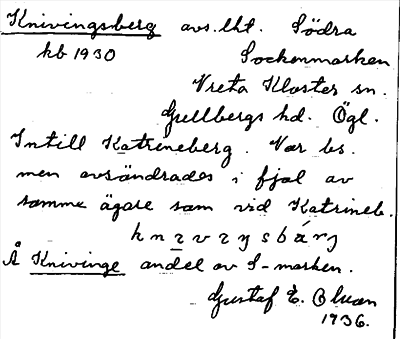 Knivingsberg avs. lht. Södra
kb 1930 Sockenmarken
Vreta Kloster sn.
Gullbergs hd. Ögl.
Intill Katrineberg. Var bs.
men avsöndrades i fjol av
samme ägare som vid Katrineb.
Å Knivinge andel av S-marken.
Gustaf E. Bluan
1936.